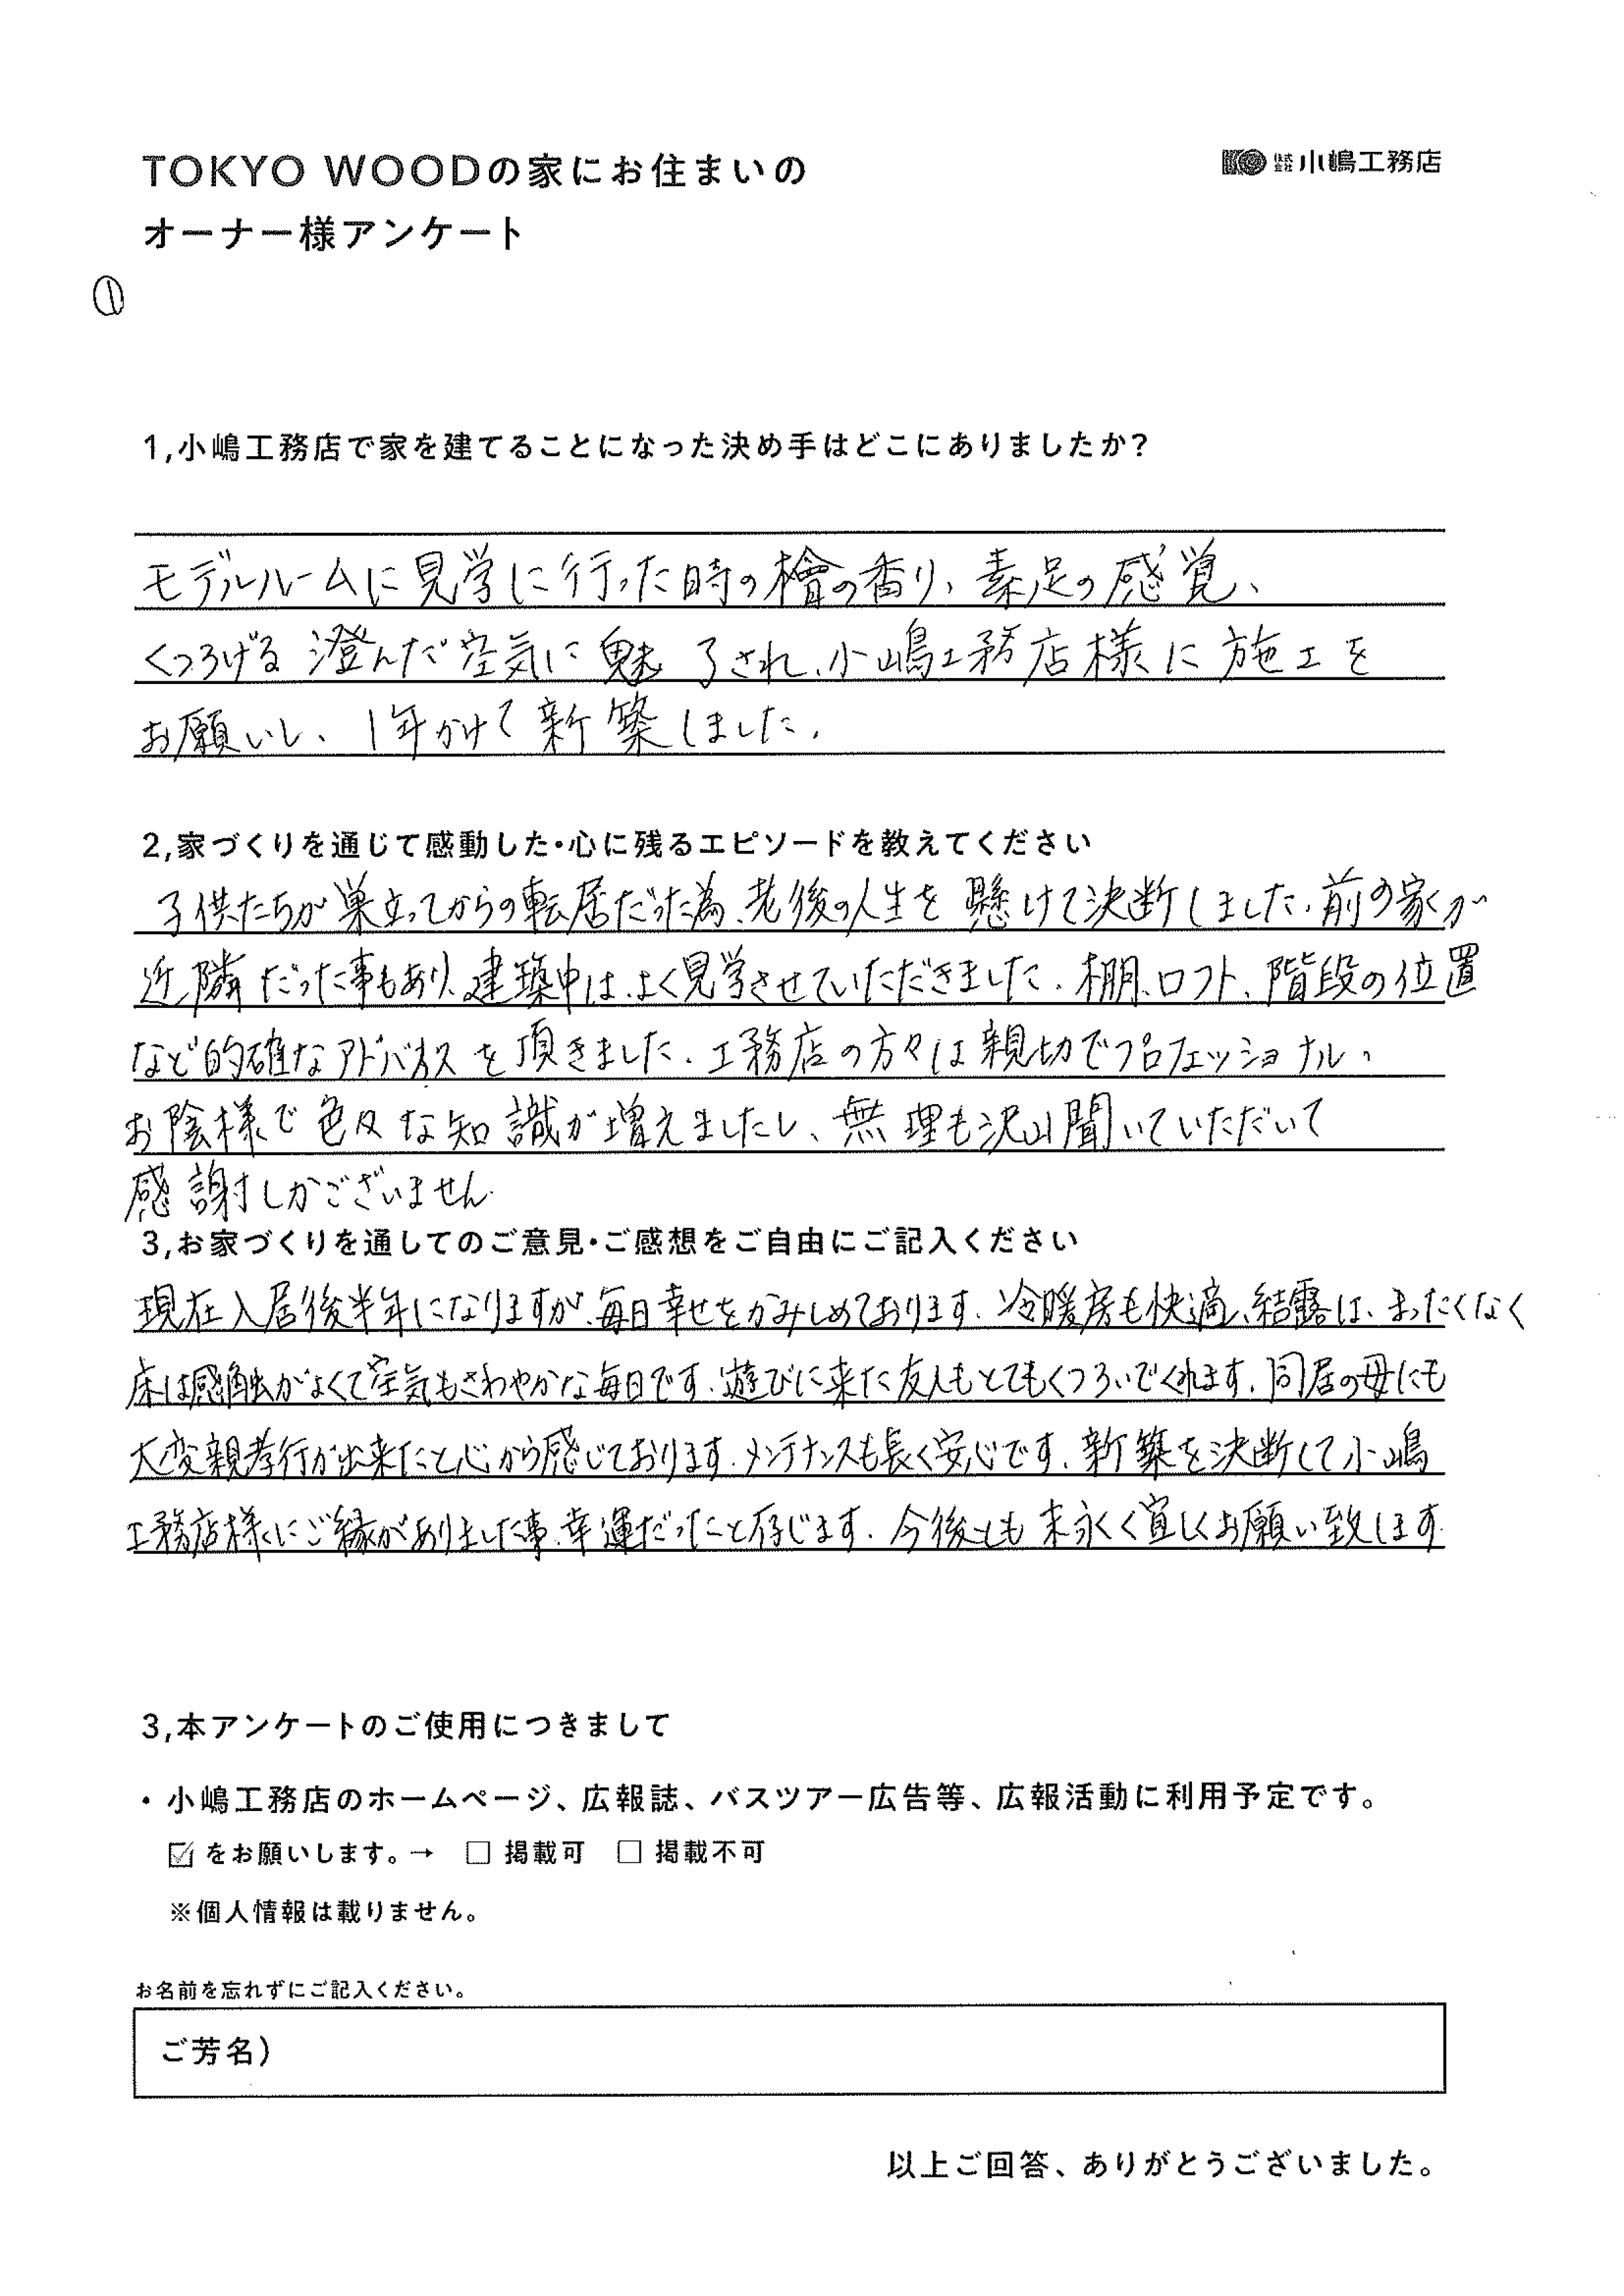 TOKYO WOODの家にお住まいの
株式会社 小嶋工務店
オーナー様アンケート
①
1,小嶋工務店で家を建てることになった決め手はどこにありましたか?
モデルルームに見学に行った時の檜の香り、素足の感覚、
くつろげる澄んだ空気に魅了され、小嶋工務店様に施工を
お願いし、1年かけて新築しました。
2,家づくりを通じて感動した・心に残るエピソードを教えてください
子供たちが巣立ってからの転居だった為、老後の人生を懸けて決断しました。前の家が
近隣だった事もあり、建築中は、よく見学させていただきました。棚、ロフト、階段の位置
など的確なアドバイスを頂きました。工務店の方々は親切でプロフェッショナル、
お陰様で色々な知識が増えましたし、無理も沢山聞いていただいて
感謝しかございません。
3,お家づくりを通してのご意見・ご感想をご自由にご記入ください
現在入居後半年になりますが、毎日幸せをかみしめております。冷暖房も快適、結露は、まったくなく
床は感触がよくて空気もさわやかな毎日です。遊びに来た友人もとてもくつろいでくれます。同居の母にも
大変親孝行が出来たと心から感じております。メンテナンスも長く安心です。新築を決断して小嶋
工務店様にご縁がありました事、幸運だったと存じます。今後とも末永く宜しくお願い致します。
3,本アンケートのご使用につきまして
・小嶋工務店のホームページ、広報誌、バスツアー広告等、広報活動に利用予定です。
☑ をお願いします。→ □ 掲載可 □ 掲載不可
※個人情報は載りません。
お名前を忘れずにご記入ください。
ご芳名)
以上ご回答、ありがとうございました。